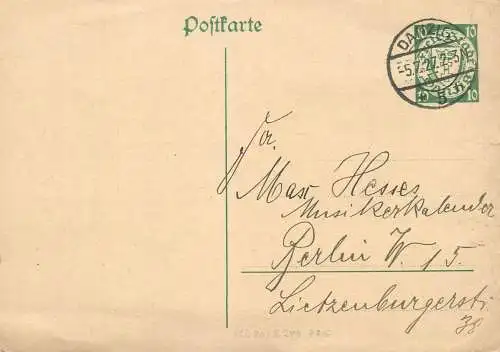 Postkarte
10 10
DANZIG
5.7.27. 2-3 N
10 10
Fa.
Max Hesses
Musikerkalender
Berlin W. 15.
Lietzenburgerstr.
38